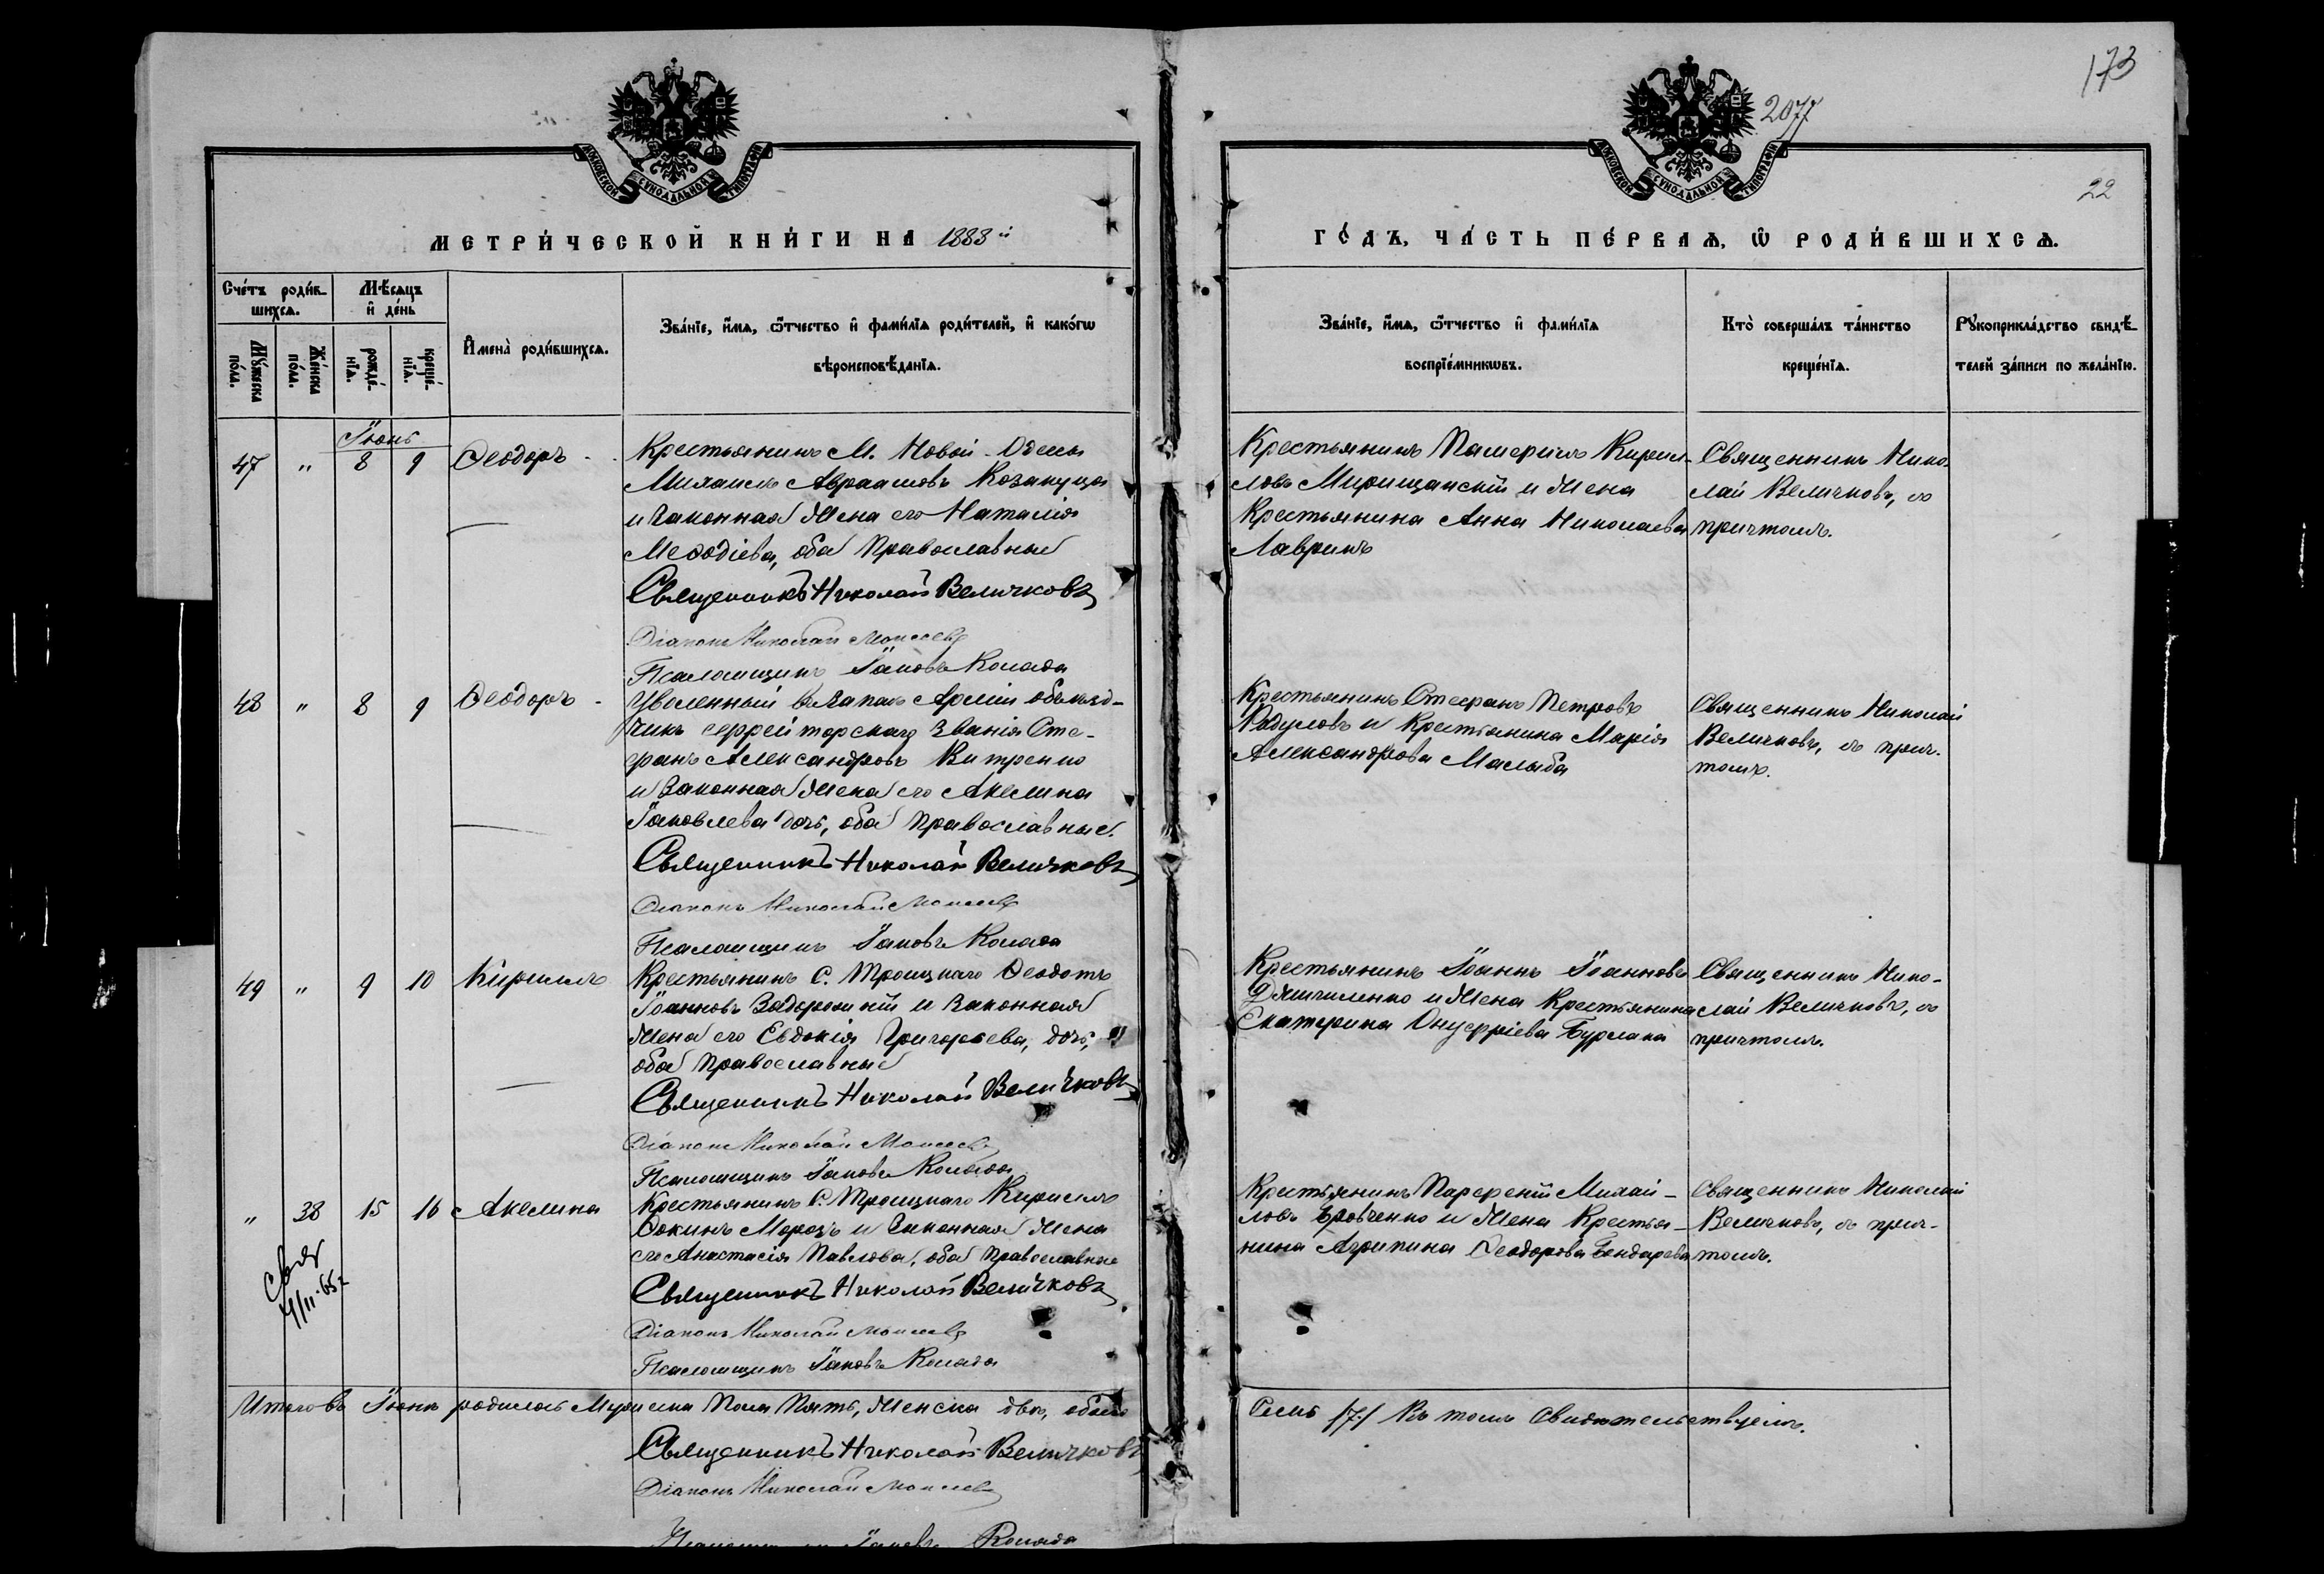 173
2077
22
МОСКОВСКОЙ СѴНОДАЛЬНОЙ ТИПОГРАФІИ
МОСКОВСКОЙ СѴНОДАЛЬНОЙ ТИПОГРАФІИ
МЕТРИ́ЧЕСКОЙ КНИ́ГИ НА 1888й
ГО́ДЪ, ЧА́СТЬ ПЕ́РВАѦ, Ѡ҆ РОДИ́ВШИХСѦ.
Сче́тъ роди́в-
шихсѧ.
Мꙋ́жеска по́ла.
Же́нска по́ла.
Мѣ́сѧцъ
и҆ де́нь
рожде́-
нїѧ.
креще́-
нїѧ.
И҆мена̀ роди́вшихсѧ.
Зва́нїе, и҆́мѧ, ѻ҆́тчество и҆ фами́лїѧ роди́телей, и҆ како́гѡ
вѣроисповѣ́данїѧ.
Зва́нїе, и҆́мѧ, ѻ҆́тчество и҆ фами́лїѧ
воспрїе́мникѡвъ.
Кто̀ соверша́лъ та́инство
креще́нїѧ.
Рꙋкоприкла́дство свидѣ́-
телей за́писи по жела́нїю.
Іюнь
47 " 8 9 Ѳеодоръ
Крестьянинъ М. Новой-Одессы
Михаилъ Авраамовъ Козакуца
и законная жена его Наталія
Меѳодіева, оба православные
Священникъ Николай Величковъ
Діаконъ Николай Моисеевъ
Псаломщикъ Іаковъ Колада
Крестьянинъ Кирил-
ловъ Мирищанскій и жена
Крестьянина Анна Николаева
Лавринъ
Священникъ Нико-
лай Величковъ, съ
причтомъ.
48 " 8 9 Ѳеодоръ
Уволенный въ запасъ Арміи объѣзд-
чикъ ефрейторскаго званія Сте-
фанъ Александровъ Витренко
и законная жена его Акелина
Іаковлева дочь, оба православные.
Священникъ Николай Величковъ
Діаконъ Николай Моисеевъ
Псаломщикъ Іаковъ Колада
Крестьянинъ Стефанъ Петровъ
Радуловъ и Крестьянина Марія
Александрова Малыба
Священникъ Николай
Величковъ, съ прич-
томъ.
49 " 9 10 Кириллъ
Крестьянинъ С. Троицкаго Ѳеодотъ
Іоанновъ Задорожній и законная
жена его Евдокія Григорьева, дочь,
оба православные
Священникъ Николай Величковъ
Діаконъ Николай Моисеевъ
Псаломщикъ Іаковъ Колада
Крестьянинъ Іоаннъ Іоанновъ
и жена Крестьянина
Екатерина Онуфріева Бурлака
Священникъ Нико-
лай Величковъ, съ
причтомъ.
" 38 15 16 Акелина
Крестьянинъ С. Троицкаго Кириллъ
Ѳокинъ Морозъ и законная жена
его Анастасія Павлова, оба православные
Священникъ Николай Величковъ
Діаконъ Николай Моисеевъ
Псаломщикъ Іаковъ Колада
Крестьянинъ Парфеній Михай-
ловъ и жена Крестья-
нина Агрипина Ѳеодорова Бондарева
Священникъ Николай
Величковъ, съ прич-
томъ.
4/II-65г
Итого въ Іюнѣ родилось Мужеска пола пять, женска два, обоего
Семь /7/ Въ томъ свидѣтельствуемъ.
Священникъ Николай Величковъ
Діаконъ Николай Моисеевъ
Псаломщикъ Іаковъ Колада